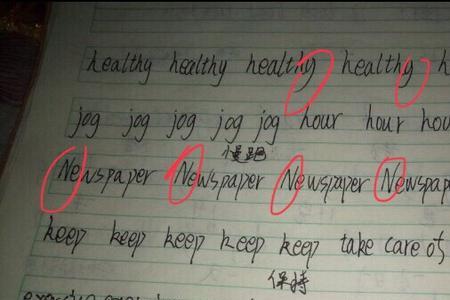 healthy healthy healthy healthy h
jog jog jog jog jog hour hour hou
慢跑
Newspaper Newspaper Newspaper Newspap
keep keep keep keep keep take care of
保持